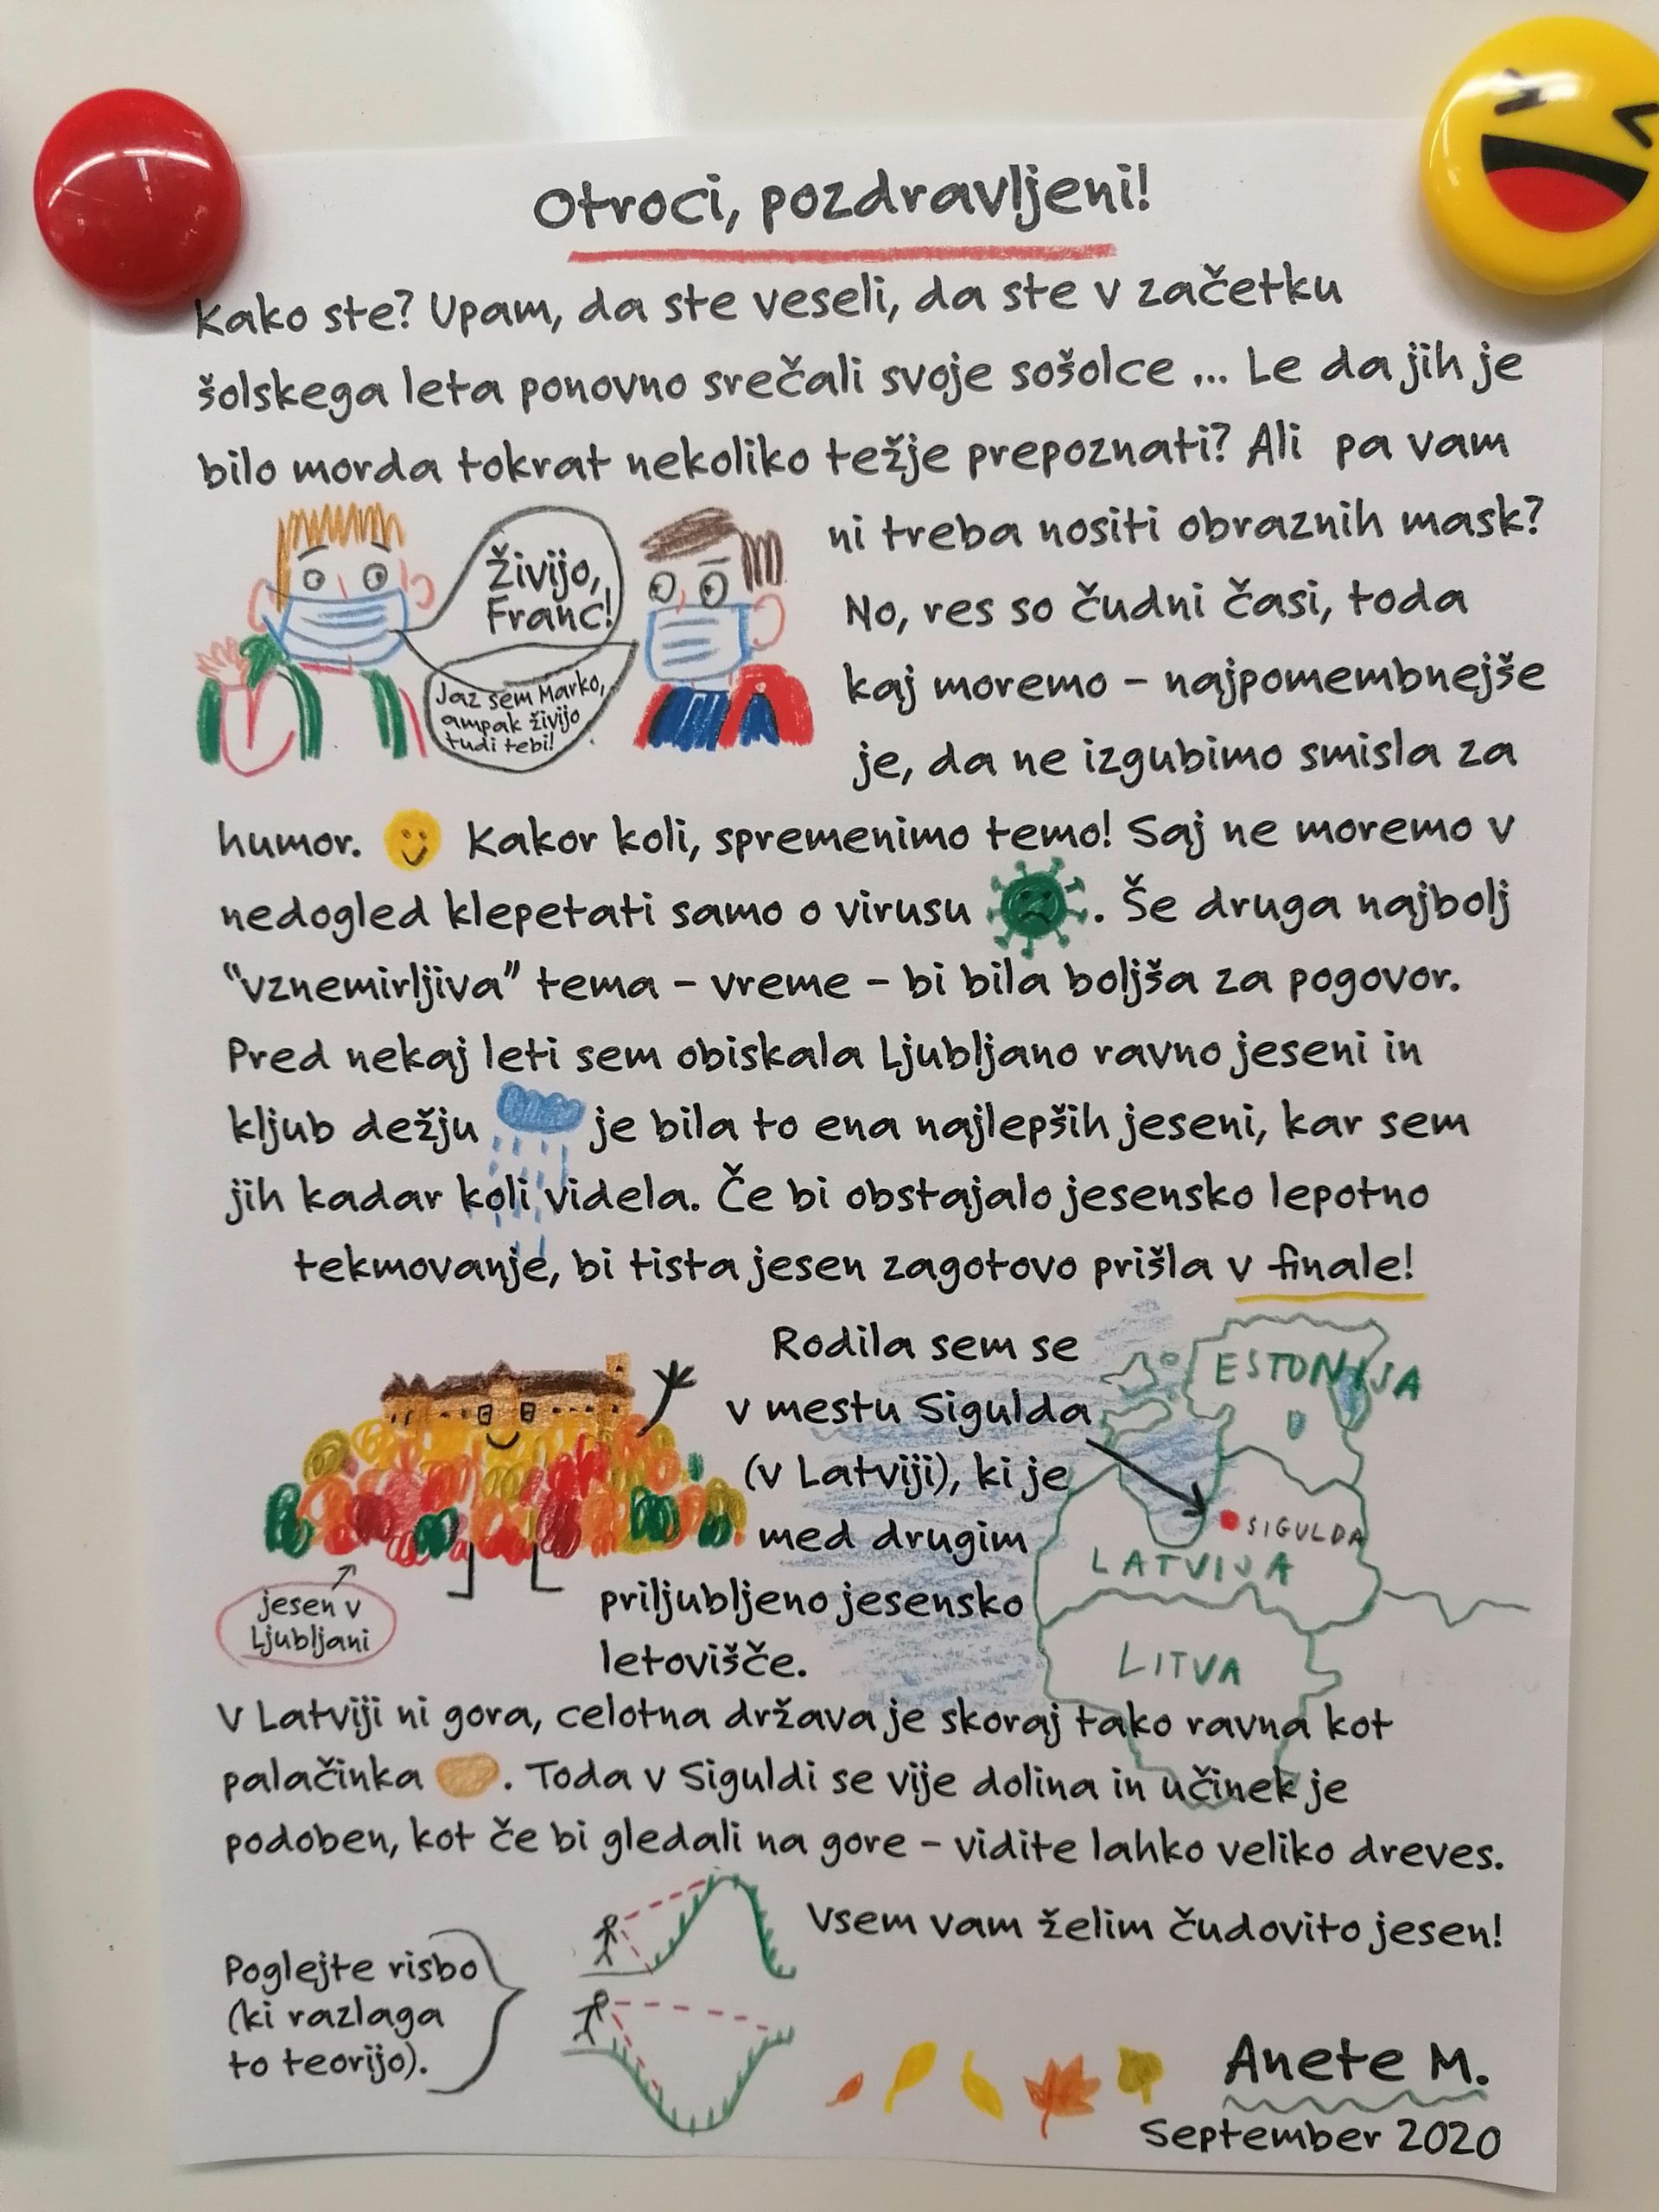 Otroci, pozdravljeni!
Kako ste? Upam, da ste veseli, da ste v začetku
šolskega leta ponovno srečali svoje sošolce ... Le da jih je
bilo morda tokrat nekoliko težje prepoznati? Ali pa vam
ni treba nositi obraznih mask?
No, res so čudni časi, toda
kaj moremo – najpomembnejše
je, da ne izgubimo smisla za
Živijo,
Franc!
Jaz sem Marko,
ampak živijo
tudi tebi!
humor. Kakor koli, spremenimo temo! Saj ne moremo v
nedogled klepetati samo o virusu . Še druga najbolj
“vznemirljiva” tema – vreme – bi bila boljša za pogovor.
Pred nekaj leti sem obiskala Ljubljano ravno jeseni in
kljub dežju je bila to ena najlepših jeseni, kar sem
jih kadar koli videla. Če bi obstajalo jesensko lepotno
tekmovanje, bi tista jesen zagotovo prišla v finale!
Rodila sem se
v mestu Sigulda
(v Latviji), ki je
med drugim
priljubljeno jesensko
letovišče.
jesen v
Ljubljani
ESTONIJA
SIGULDA
LATVIJA
LITVA
V Latviji ni gora, celotna država je skoraj tako ravna kot
palačinka . Toda v Siguldi se vije dolina in učinek je
podoben, kot če bi gledali na gore – vidite lahko veliko dreves.
Vsem vam želim čudovito jesen!
Poglejte risbo
(ki razlaga
to teorijo).
Anete M.
September 2020